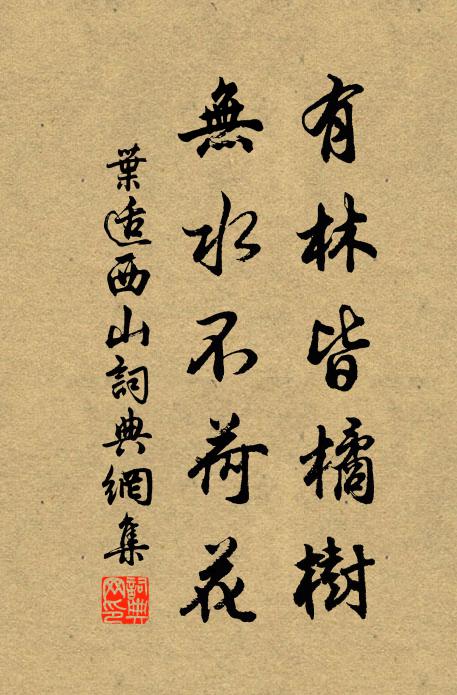 有林皆橘樹
無水不荷花
葉適西山詞典網集
詞典網印